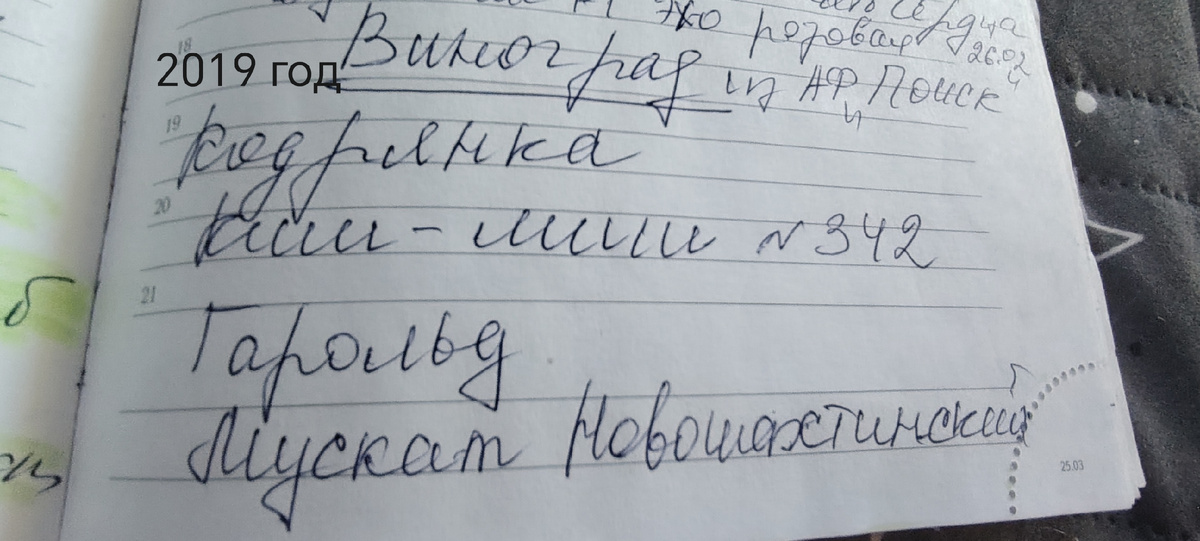 сердца
Эхо розовая 26.02
18
2019 год
Виноград из АФ Поиск
19
Кодрянка
20
Киш-миш N 342
21
Гарольд
Мускат Новошахтинский
25.03
б